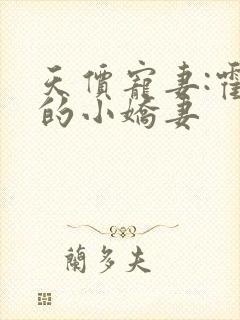 天價寵妻:
的小嬌妻
蘭多夫